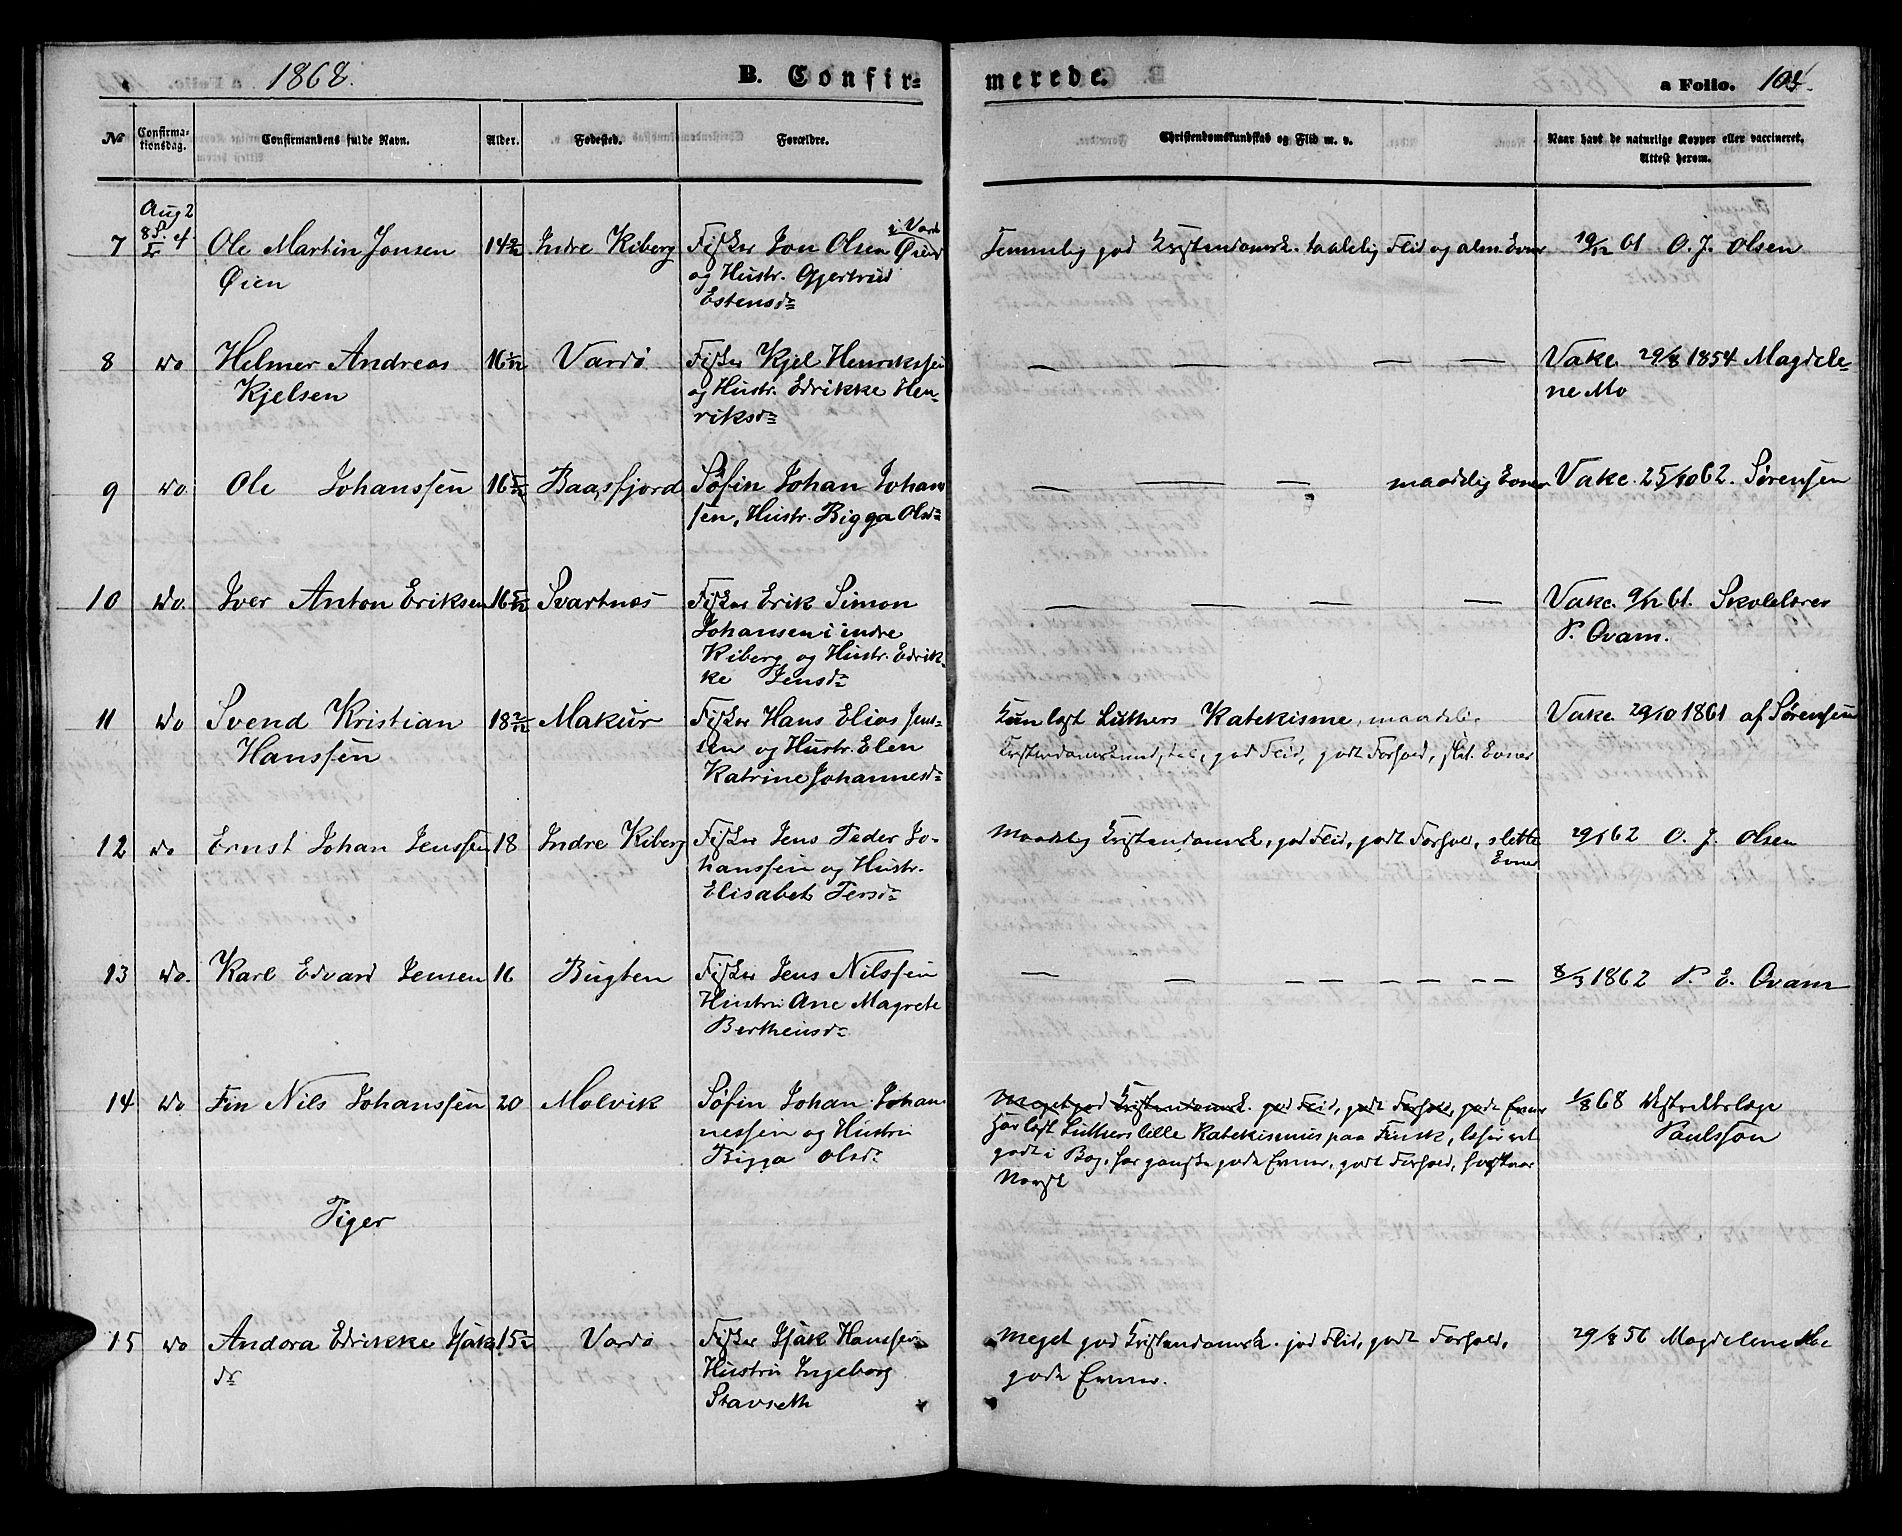 1868.
B. Confir-
merede.
a Folio. 104.
№
Confirma-
tionsdag.
Confirmandens fulde Navn.
Alder.
Fødested.
Forældre.
Christendomskundskab og Flid m. v.
Naar havt de naturlige Kopper eller vaccineret.
Attest herom.
Aug 2
8 S. e.
Tr.
7 Ole Martin Jonsen
Øien
14 2/12 Indre Kiberg
Fisker Jon Olsen Øien
og Hustr. Gjertrud
Estensdr
Temmelig god Kristendomsk. taalelig Flid og alm. Evner
19/12 61 O. J. Olsen
8 do Helmer Andreas
Kjelsen
16 1/12 Vardö
Fisker Kjel Henrikssen
og Hustr. Edrikke Hen-
riksdr
— — — — —
Vakc. 29/8 1854 Magdele-
ne Mo
9 do Ole Johanssen
16 5/12 Baadsfjord
Søfin Johan Johan
sen, Hustr. Bigga Olsdr
— — — maadelig Evner
Vakc. 25/10 62. Sørensen
10 do. Iver Anton Eriksen
16 5/12 Svartnæs
Fisker Erik Simon
Johansen i indre
Kiberg og Hustr. Edrik-
ke Jensdr
— — — —
Vakc. 9/12 61. Skolelærer
P. Qvam.
11 do Svend Kristian
Hanssen
18 2/12 Makur
Fisker Hans Elias Jens-
sen og Hustr. Elen
Katrine Johannesdr
Kun læst Luthers Katekisme, maadelig
Kristendomskundskab, god Flid, godt Forhold, slet. Evner
Vakc. 29/10 1861 af Sørensen
12 do Ernst Johan Jenssen
18 Indre Kiberg
Fisker Jens Peder Jo-
hanssen og Hustr.
Elisabet Persdr
Maadelig Kristendomsk., god Flid, godt Forhold, slette
Evner
29/1 62 O. J. Olsen
13 do. Karl Edvard Jensen
16 Bugten
Fisker Jens Nilssen
Hustru Ane Magrete
Bertheusdr
— — — — — — —
8/3 1862 P. E. Qvam
14 do Fin Nils Johanssen
20 Molvik
Søfin Johan Johan-
nessen og Hustru
Bigga Olsdr.
Meget god Kristendomsk. god Flid, godt Forhold, gode Evner
Har læst Luthers lille Katekismus paa Finsk, læser ret
godt i Bog, har ganske gode Evner, godt Forhold, forstaar
Norsk
1/8 68 Distriktslæge
Paulsson
Piger
15 do Andora Edrikke Isaks
dr
15 Vardø
Fisker Isak Hanssen
Hustru Ingeborg
Stavseth
Meget god Kristendomsk. god Flid, godt Forhold,
gode Evner.
29/8 56 Magdelene Mo